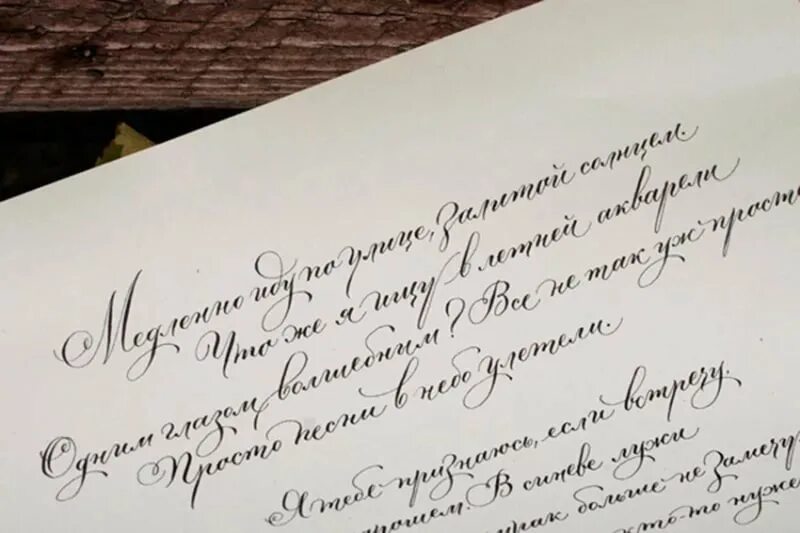 Медленно иду по улице, залитой солнцем.
Что же я ищу в летней акварели
Одним глазом волшебным? Все не так уж просто
Просто песни в небо улетели.
Я тебе признаюсь, если встречу.
В синеве лужи
больше не замечу
кто-то нуже